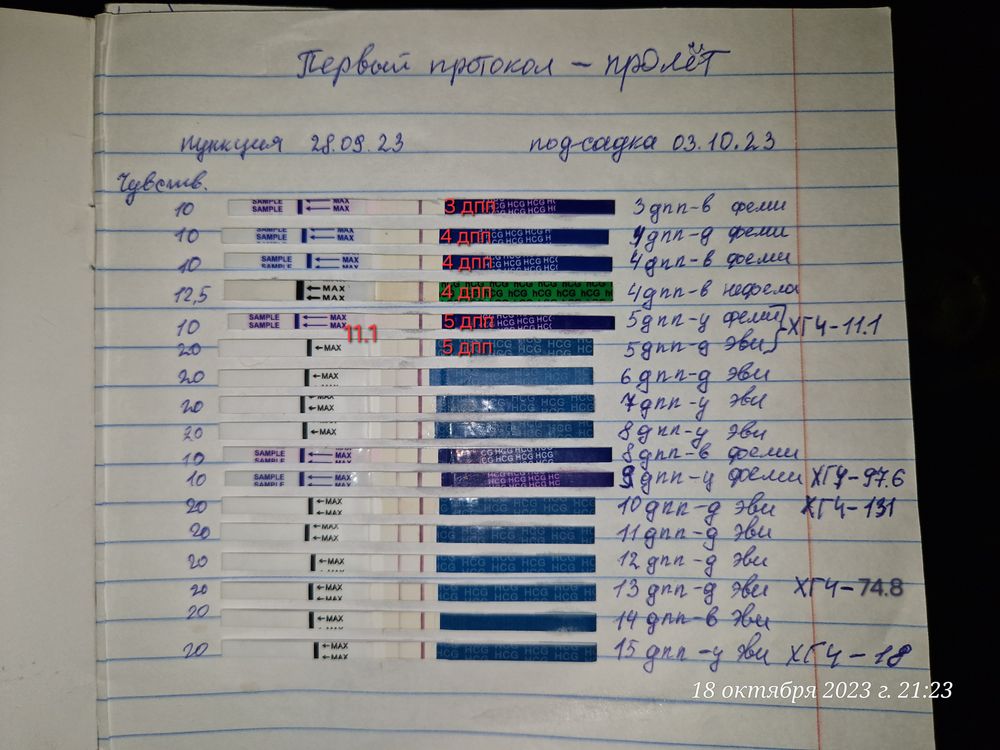 Первый протокол - пролёт
пункция 28.09.23 подсадка 03.10.23
Чувств.
10 SAMPLE SAMPLE MAX MAX 3 дпп HCG HCG HCG 3 дпп-в феми
10 SAMPLE SAMPLE MAX 4 дпп HCG HCG HCG 4 дпп-д феми
10 SAMPLE SAMPLE MAX 4 дпп HCG HCG HCG 4 дпп-в феми
12,5 MAX MAX 4 дпп hCG hCG hCG hCG 4 дпп-в нефела
10 SAMPLE SAMPLE MAX MAX 5 дпп HCG HCG HCG 5 дпп-у феми ХГЧ-11.1
11.1
20 MAX 5 дпп HCG HCG 5 дпп-д эви
20 MAX 6 дпп-д эви
20 MAX HCG HCG HCG 7 дпп-у эви
20 MAX HCG HCG 8 дпп-у эви
10 SAMPLE SAMPLE MAX MAX HCG HCG HCG 8 дпп-в феми
10 SAMPLE SAMPLE MAX MAX HCG HCG HCG 9 дпп-у феми ХГЧ-97.6
20 MAX MAX HCG HCG HCG 10 дпп-д эви ХГЧ-131
20 MAX MAX HCG HCG HCG 11 дпп-д эви
20 MAX HCG HCG HCG 12 дпп-д эви
20 MAX MAX HCG HCG HCG 13 дпп-д эви ХГЧ-74.8
20 MAX 14 дпп-в эви
20 MAX MAX HCG HCG HCG 15 дпп-у эви ХГЧ-18
18 октября 2023 г. 21:23